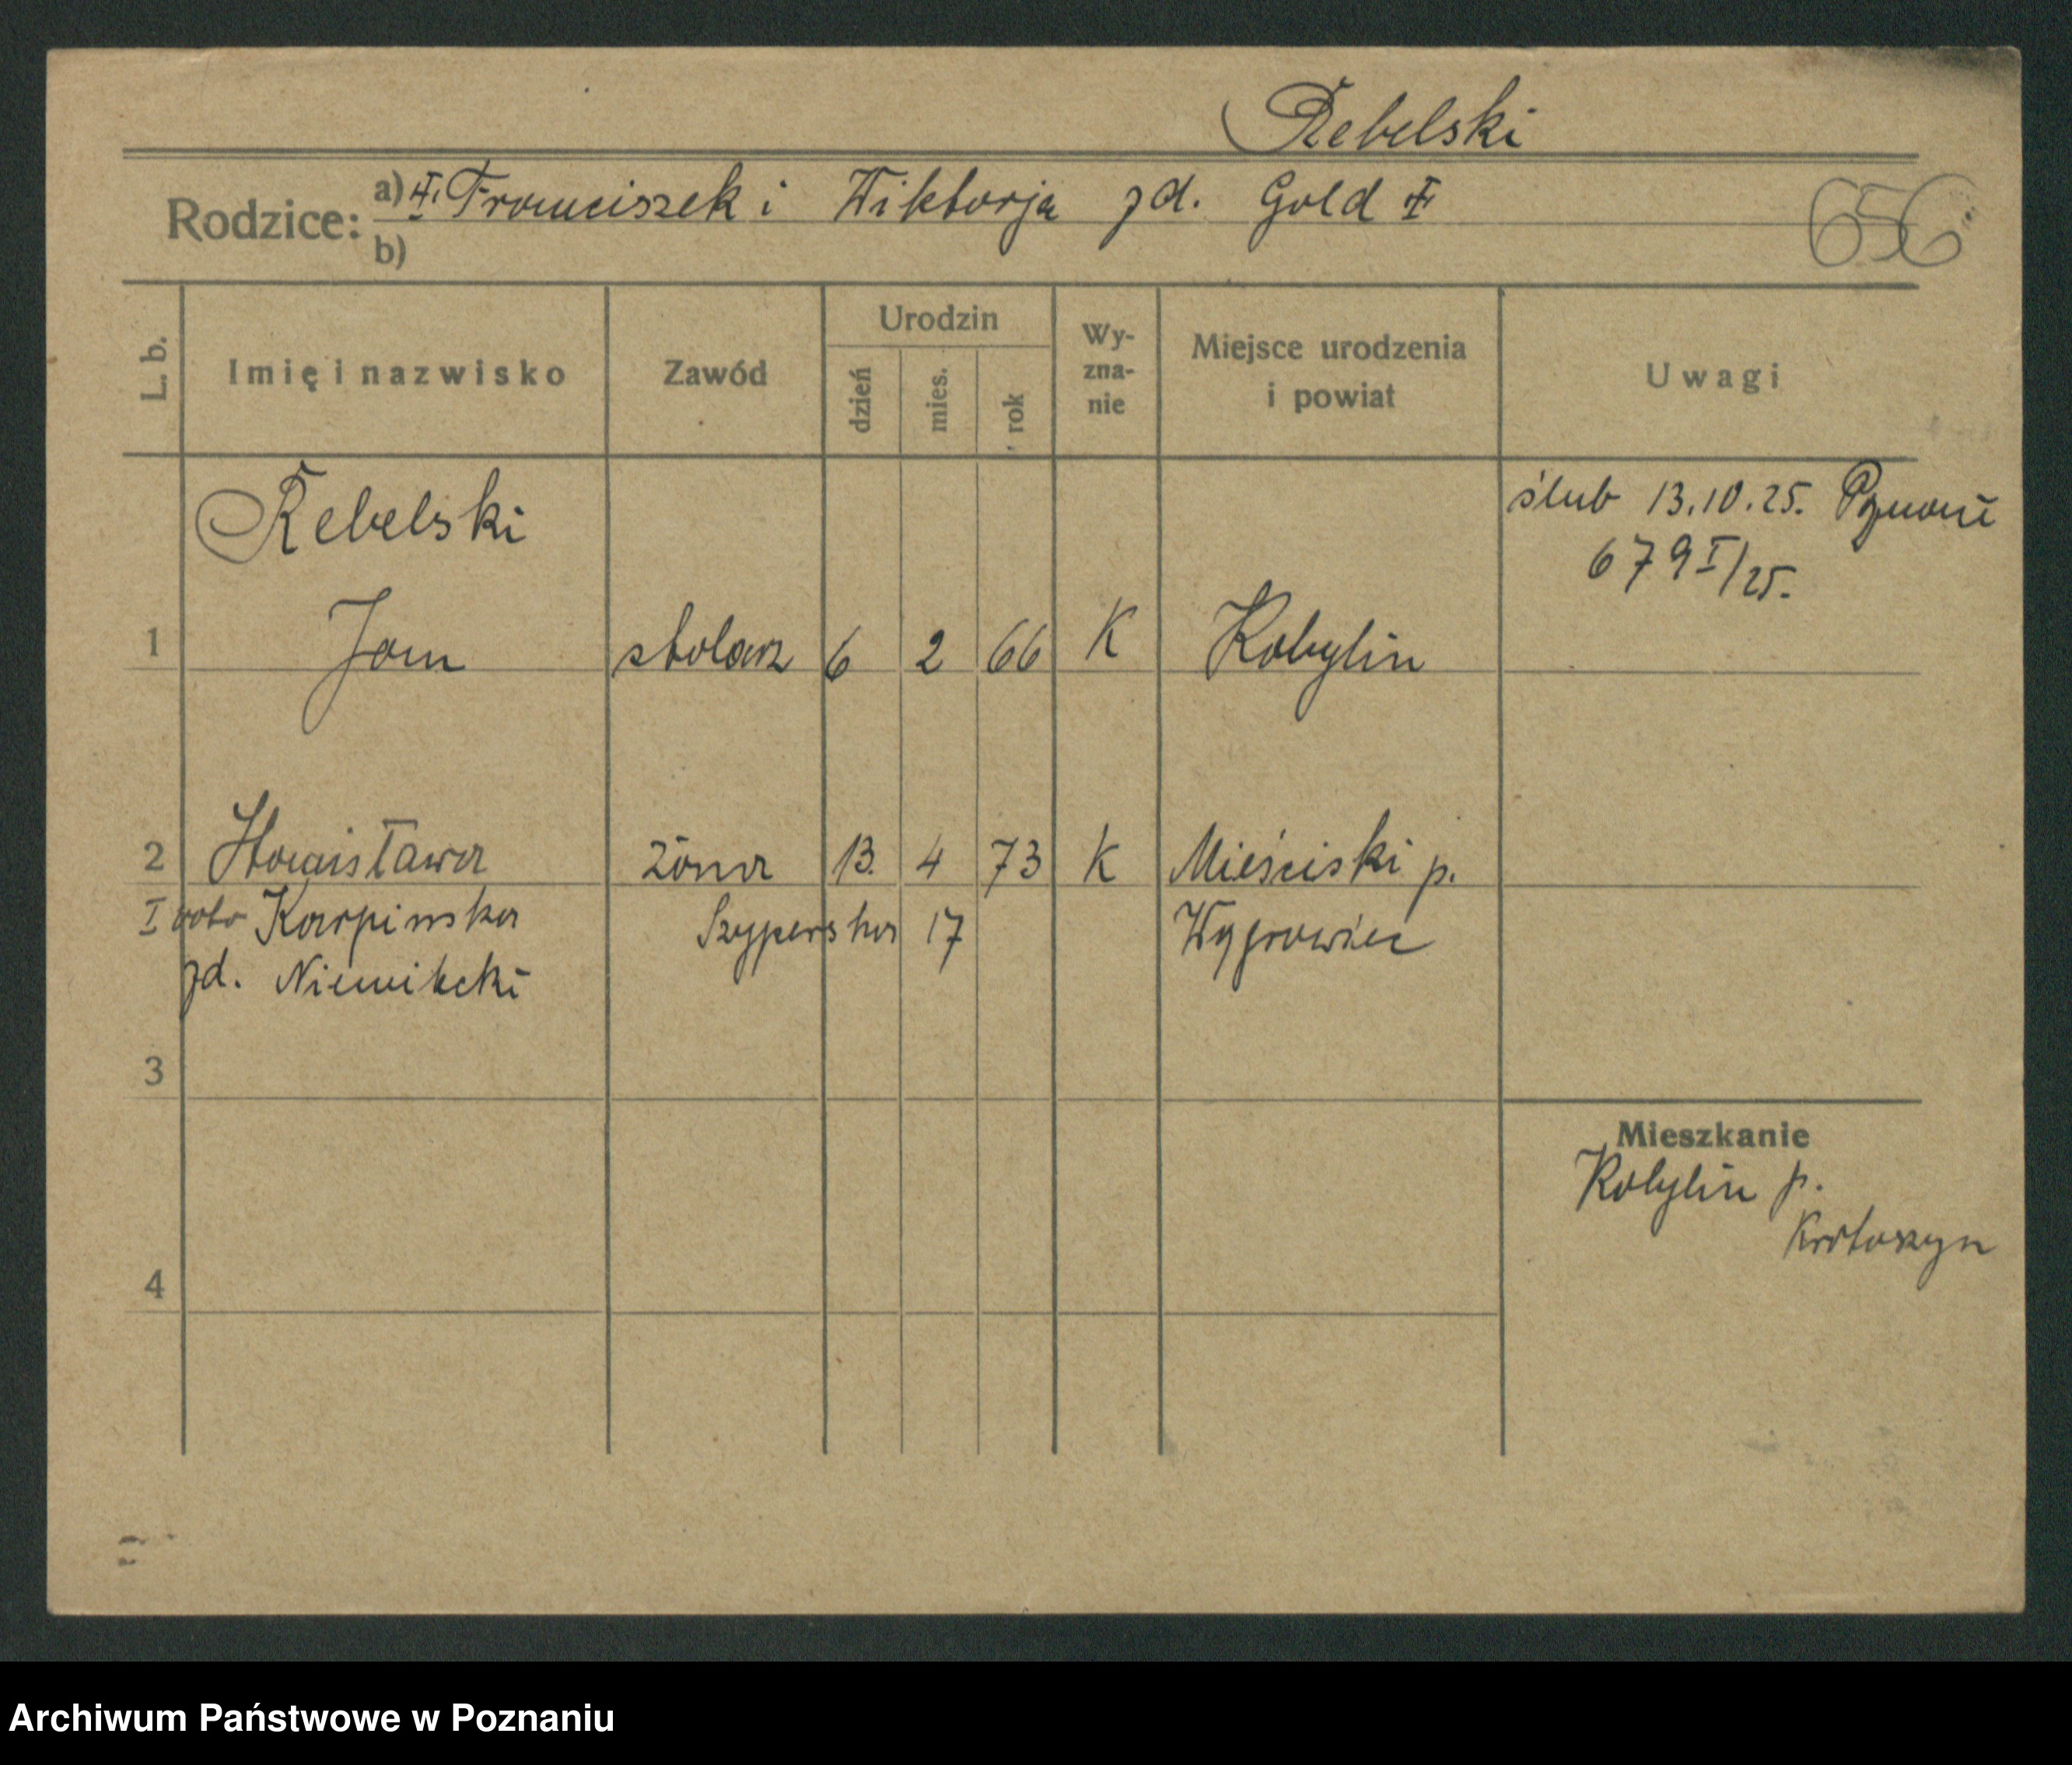 Rebelski
Rodzice: a) Franciszek i Wiktorja zd. Gold
b)
656
L. b. Imię i nazwisko Zawód Urodzin dzień mies. rok Wy-zna-nie Miejsce urodzenia i powiat Uwagi
Rebelski ślub 13.10.25. Poznań
679 I/25.
1 Jan stolarz 6 2 66 K Kobylin
2 Stanisława żona 13. 4 73 K Mieściski p.
I voto Karpinska Szyperska 17 Wągrowiec
zd. Niewitecki
3
Mieszkanie
Kobylin p.
Krotoszyn
4
Archiwum Państwowe w Poznaniu